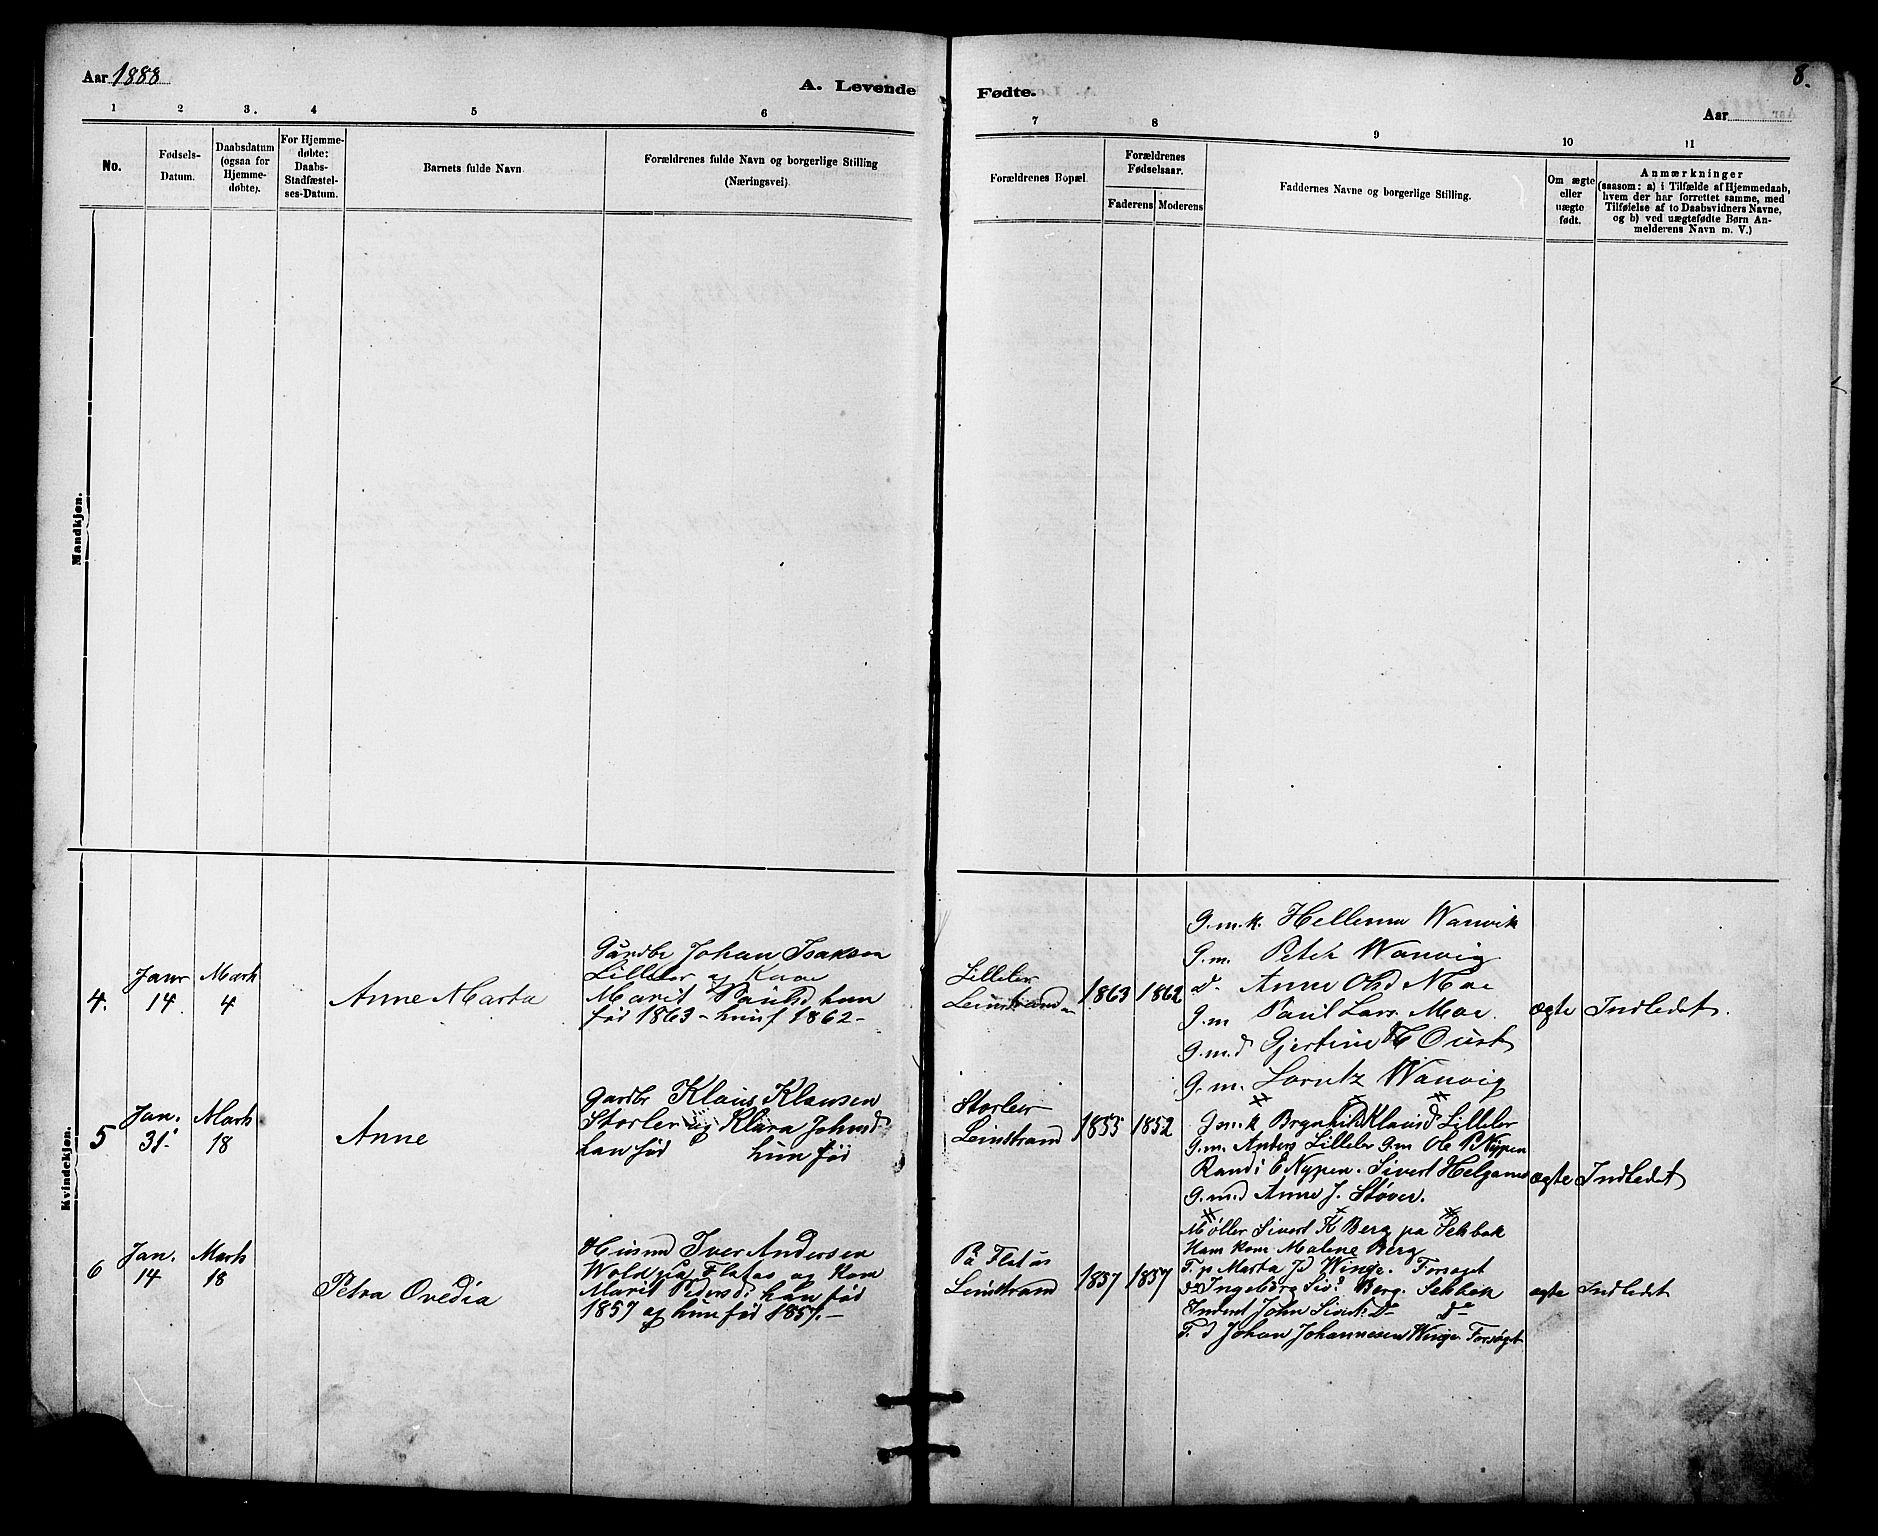 Aar 1888
A. Levende
Fødte.
8.
Aar
1 2 3. 4 5 6
7 8 9 10 11
No.
Fødsels-
Datum.
Daabsdatum
(ogsaa for
Hjemme-
døbte).
For Hjemme-
døbte:
Daabs-
Stadfæstel-
ses-Datum.
Barnets fulde Navn
Forældrenes fulde Navn og borgerlige Stilling
(Næringsvei).
Forældrenes Bopæl.
Forældrenes
Fødselsaar.
Faderens Moderens
Faddernes Navne og borgerlige Stilling.
Om ægte
eller
uægte
født.
Anmærkninger
(saasom: a) i Tilfælde af Hjemmedaab,
hvem der har forrettet samme, med
Tilføielse af to Daabsvidners Navne,
og b) ved uægtefødte Børn An-
melderens Navn m. V.)
Mandkjøn.
Kvindekjøn.
4.
Janr
14
Marts
4
Anne Marta
Gaardbr Johan Isaksen
Lilleler og Kone
Marit Paulsd han
fød 1863 – hun f 1862 –
Lilleler
Leinstrand
1863 1862
G.m.k. Wanvik
G.m. Peter Wanvig
Anne Olsd Moe
G.m Paul Lars. Moe.
G.m.d Gjertine Oust
G.m. Lorntz Wanvig
ægte Indledet.
5
Jan.
31.
Marts
18
Anne
Gardbr Klaus Klausen
Storler og Klara Johnsd
han fød hun fød
Storler
Leinstrand
1855 1852
G.m.k Klausd Lilleler
G.m. Anders Lilleler G.m Ole P. Nypen
Randi E Nypen. Sivert
G.m.d Anne J. Støver.
ægte Indledet
6
Jan.
14
Marts
18
Petra Ovedia
Husmd Iver Andersen
Wold paa Flatas og Kone
Marit Pedersd. han fød
1857 og hun fød 1857. –
På Flatås
Leinstrand
1857 1857
Møller Sivert K Berg pa
Ham kone Malene Berg
T.p Marta Jd Winge.
Ingeborg Sivd Berg.
John Sivert. Do Do
T. d Johan Johannesen Winge
ægte Indledet